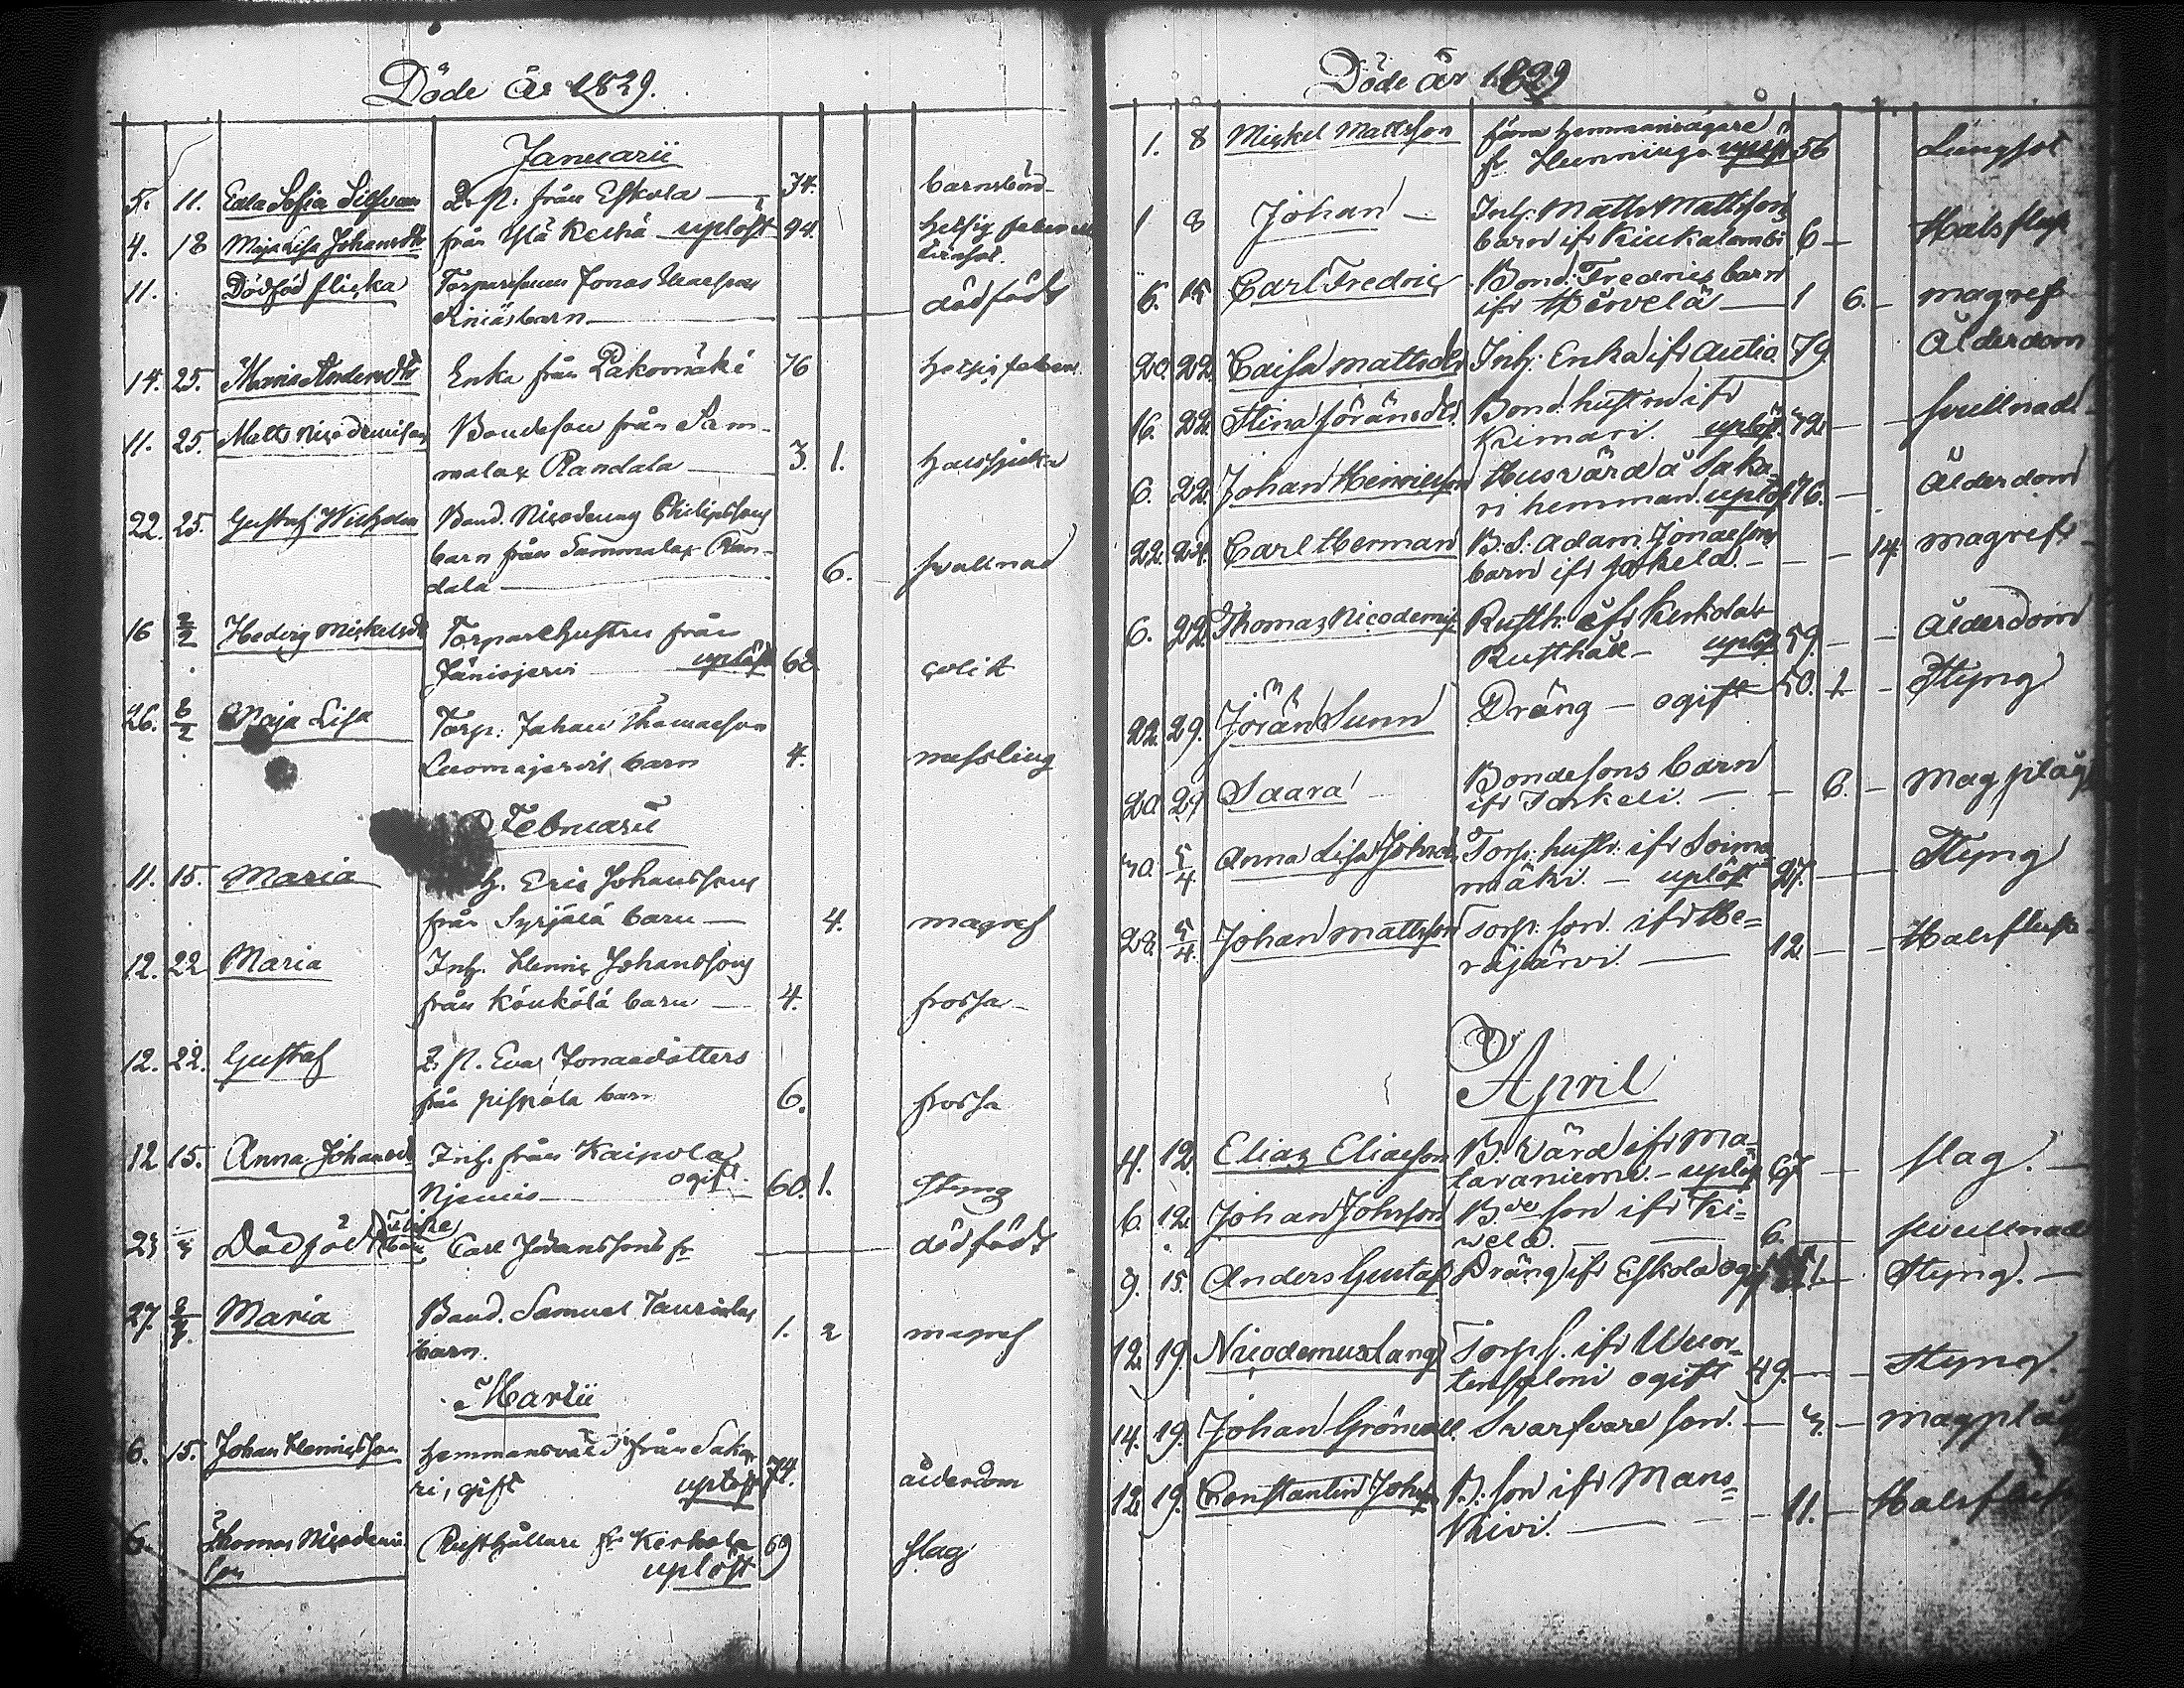 Döde år 1829.
Januarii
5. 11. Edla Sofia Silfvan D. p. från Eskola — 34. barnsbörd
4. 18 Maja Lisa Johansdtr från Ylä Keihä uplöst 44. hetsig feber
11. Dödfödd flicka Torparesonen Jonas
barn — dödfödt
14. 25. Maria Andersdtr Enka från Pakornäki 76 hetsig feber
11. 25. Matts Nicodemison Bondeson från Sam-
malax Randala — 3. 1. halssjuka
22. 25. Gustaf Wilhelm Bond. Nicodemus Philipssons
barn från Sammalax Ran-
dala — 6. svullnad
16 2/2 Hedvig Mickelsdr Torparehustru från
Jänisjervi uplöst 62 colik
26. 8/2 Maja Lisa Torp. Johan Thomasson
Luomajervis barn 4. messling
Februarii
11. 15. Maria Eric Johanssons
från Syrjälä barn — 4. magref
12. 22 Maria Inh. Henric Johanssons
från Köukölä barn — 4. frossa
12. 22. Gustaf P. Eva Jonaedotters
från Pispala barn 6. frossa
12 15. Anna Johansdr Inh. från Kaipola
Njemis — ogift. 60. 1. styng
23 Dödfödt Carl Jöranssons — dödfödt
27. Maria Bond. Samuel Taurialas
barn. 1. 2 magref
Martii
6. 15. Johan Henricsson Hemmansvärd från Saka
ri, gift uplöst 74. ålderdom
6. Thomas Nicodemi
son Rusthållare fr. Kerkola 69 slag
uplöst
Döde år 1829
1. 8 Mickel Mattsson förra hemmansägare
fr. Hunninga uplöst 56 Lungsot
1 8 Johan — Inh. Matts Mattssons
barn ifr Kiukalambi 6 — Halsfluss
6. 15 Carl Fredric Bond. Fredrics barn
ifr Hörvelä — 1 6. — magref
20. 22. Caisa Mattsdr Inh. Enka ifr Autio 79. Ålderdom
16. 22 Stina Jöränsdr. Bond. hustru ifr
Krimari. uplöst. 72 — — svullnad
6. 22. Johan Henricsson Husvärd å Saka
ri hemman. uplöst 76. — Ålderdom
22. 24. Carl Herman B. S. Adam Jonaesons
barn ifr Jokela. — — — 14. magref
6. 22. Thomas Nicodemis Rusth. ifr Kerkola
Rusthåll — uplöst 59. — — Ålderdom
22. 29. Jöran Sunn Dräng — ogift 50. 1 — Styng
20. 29 Saara — Bondesons barn
ifr Torkeli. — — 6. — Magplåg
30. 5/4 Anna Lisa Johsdr Torp. hustr. ifr Soima
mäki. — uplöst 27. — — Styng
28. 5/4 Johan Mattsson Torp. son. ifr He=
räjärvi. — 12 — — Halsfluss
April
4. 12. Elias Eliaeson B. Värd ifr Ma-
taraniemi. — uplöst 67 — slag. —
6. 12. Johan Johsson B.de son ifr Ki=
welä. — — 6. — svullnad
9. 15. Anders Gustafs Dräng ifr Eskola ogift — Styng. —
12. 19. Nicodemus Lang Torp. S. ifr Wuor-
tensalmi ogift 49. — — Styng.
14. 19. Johan Grönvall. Svarfvare son. — 3. — magplåg
12. 19. Constantin Johss B. son ifr Mans=
kivi. — — — 11. — Halsfluss